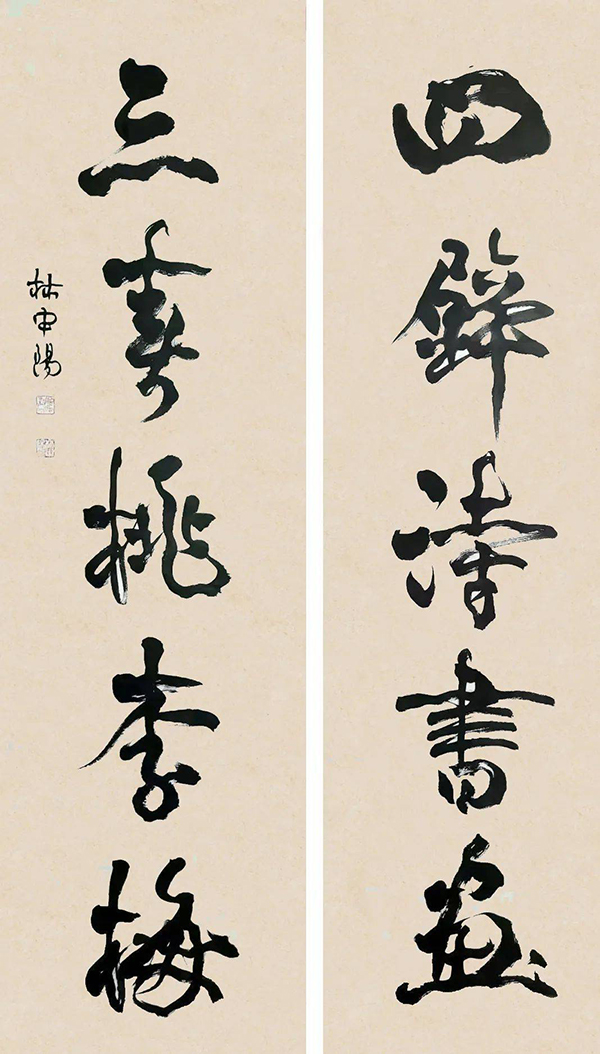 四壁詩書畫
三春桃李梅
林中陽